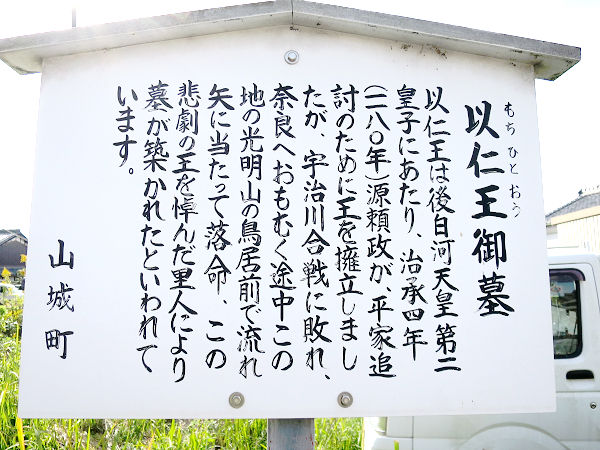 もちひとおう
以仁王御墓
以仁王は後白河天皇第二
皇子にあたり、治承四年
(一一八〇年)源頼政が、平家追
討のために王を擁立しまし
たが、宇治川合戦に敗れ、
奈良へおもむく途中この
地の光明山の鳥居前で流れ
矢に当たって落命、この
悲劇の王を悼んだ里人により
墓が築かれたといわれて
います。
山城町